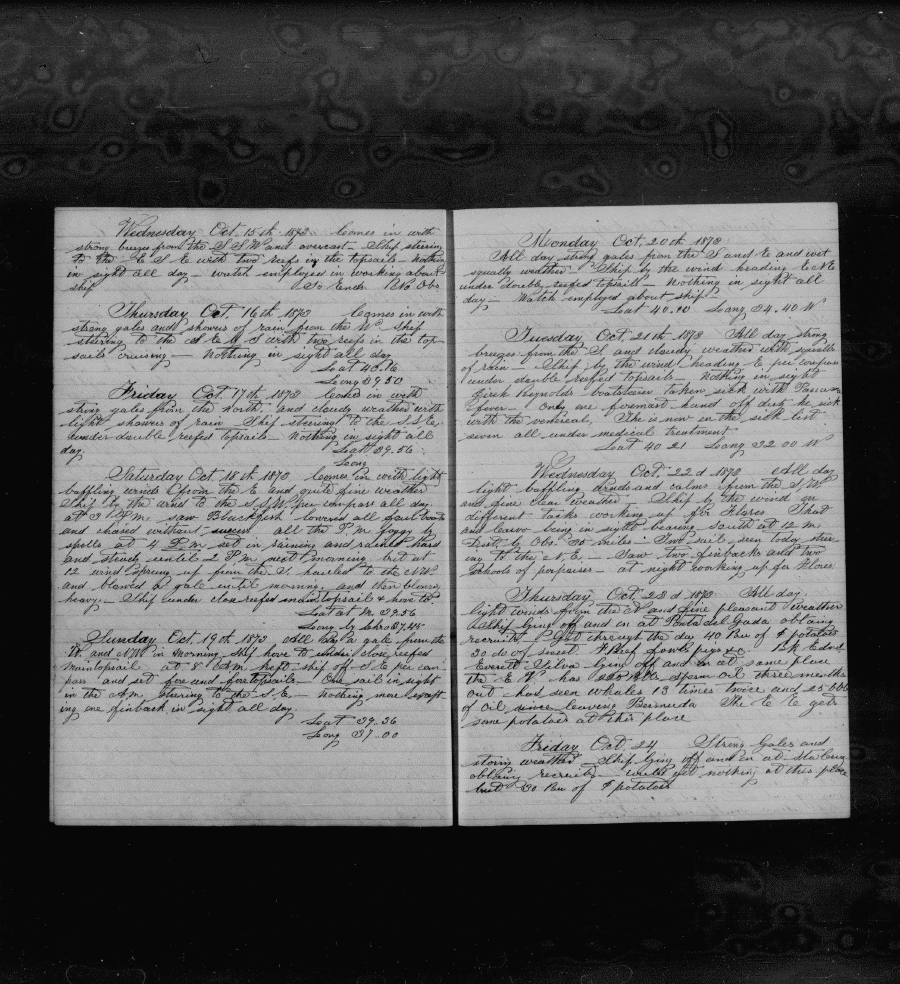 Wednesday Oct. 15th 1873 Comes in with
strong breezes from the S S W and overcast - Ship steering
to the E S E with two reefs in the topsails - Nothing
in sight all day - watch employed in working about
ship So Ends No Obs
Thursday Oct. 16th 1873 Comes in with
strong gales and showers of rain from the W. Ship
steering to the S E & S with two reefs in the top
sails cruising - Nothing in sight all day
Lat 40.16
Long 39 50
Friday Oct. 17th 1873 looked in with
strong gales from the North. and cloudy weather with
light showers of rain Ship steering to the S S E,
under double reefed topsails - Nothing in sight all
day. Lat 39.56
Long
Saturday Oct. 18th 1873 Comes in with light
baffling winds from the E and quite fine weather
Ship by the wind to the S S W per compass all day.
at 3 P.M. saw Blackfish lowered all four boats
and chased without success all the P.M. foggy by
spells at 4 P.m. set in raining and rained hard
and steady until - next morning but at
12 wind sprung up from the S. hauled to the NW
and blowed a gale until morning and then blowing
heavy - Ship under close reefed main topsail & hove to.
Lat at M. 39.56
Long by Chro 37.45
Sunday Oct. 19th 1873 All day a gale from the
W. and NW in morning Ship hove to under close reefed
maintopsail at 8 A.m. kept ship off S E per com
pass and set fore and foretopsails - One sail in sight
in the A.m. steering to the S.E. - Nothing more except
ing one finback in sight all day.
Lat 39.36
Long 37.00
Monday Oct. 20th 1873
All day strong gales from the S and E and wet
squally weather Ship by the wind heading E.N.E
under double reefed topsails - Nothing in sight all
day - Watch employed about ship
Lat 40.10 Long 34.40 W
Tuesday Oct. 21th 1873 All day strong
breezes from the S and cloudy weather with squalls
of rain - Ship by the wind heading E per compass
under double reefed topsails Nothing in sight
Reynolds boatsteerer taken sick with
fever - Only one foremast hand off duty he sick
with the venereal, There is now on the sick list
seven all under medical treatment
Lat 40 21 Long 32 00 W
Wednesday Oct. 22d 1873 All day
light baffling winds and calms from the S/W
and fine clear weather - Ship by the wind on
different tacks working up for Flores That
and Corvo being in sight bearing South at 12 m.
Dist. by Obs 35 miles - Two sail seen today steer
ing to the N E - Saw two finbacks and two
schools of porpoises - at night working up for Flores
Thursday Oct. 23d 1873 All day.
light winds from the N and fine pleasant weather
Ship lying off and on at Ponta del Gada obtaing
recruits - Got through the day 40 Bu of I potatoes
30 do of sweet 1 Beef fowls pigs &c Bk Edward
Everett Silva lying off and on at same place
the E E has sperm Oil three months
out had seen whales 13 times twice and 25 bbls
of Oil since leaving Bermuda The E E gets
some potatoes at this place
Friday Oct. 24 Strong Gales and
stormy weather - Ship lying off and on at Sta Cruz
obtaing recruits - could get nothing at this place
but 30 Bu of I potatoes